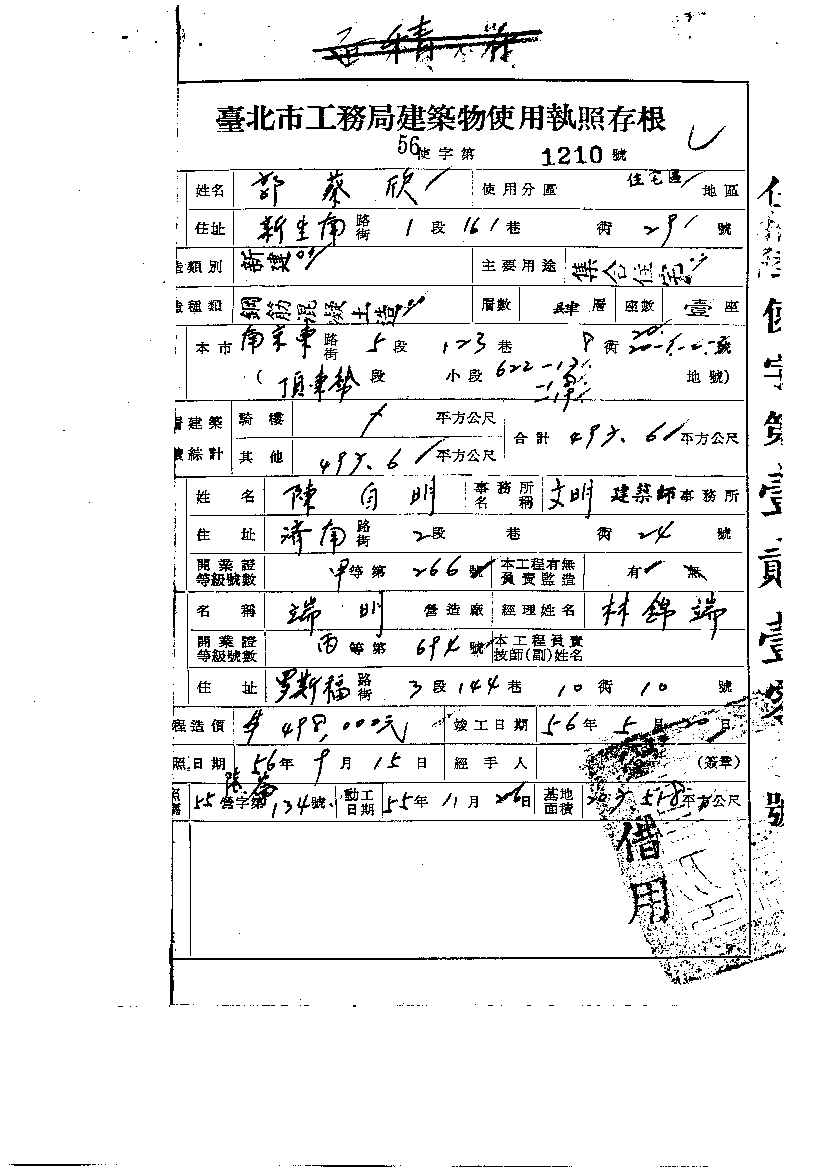 臺北市工務局建築物使用執照存根
56使字第 1210 號
姓名 鄧蔡欣 使用分區 住宅區 地區
住址 新生南 路街 1 段 161 巷 街 29 號
造類別 新建 主要用途 集合住宅
造種類 鋼筋混凝土造 層數 肆 層 座數 壹 座
本市 南京東 路街 5 段 123 巷 8 街 號
( 頂東勢 段 小段 622- 地號)
層建築 騎樓 平方公尺 合計 平方公尺
積綜計 其他 平方公尺
姓名 陳自明 事務所名稱 文明 建築師事務所
住址 濟南 路街 2段 巷 街 24 號
開業證等級號數 甲等第 266 號 本工程有無負責監造 有 無
名稱 瑞明 營造廠 經理姓名 林錦端
開業證等級號數 丙等第 694 號 本工程負責技師(副)姓名
住址 罗斯福 路街 3 段 144 巷 10 街 10 號
程造價 $ 498,000元 竣工日期 56年 5月 20日
照日期 56年 9月 15日 經手人 (簽章)
照 55營字第 134號 動工日期 55年 11月 26日 基地面積 平方公尺
借用
使字第壹貳壹零 號